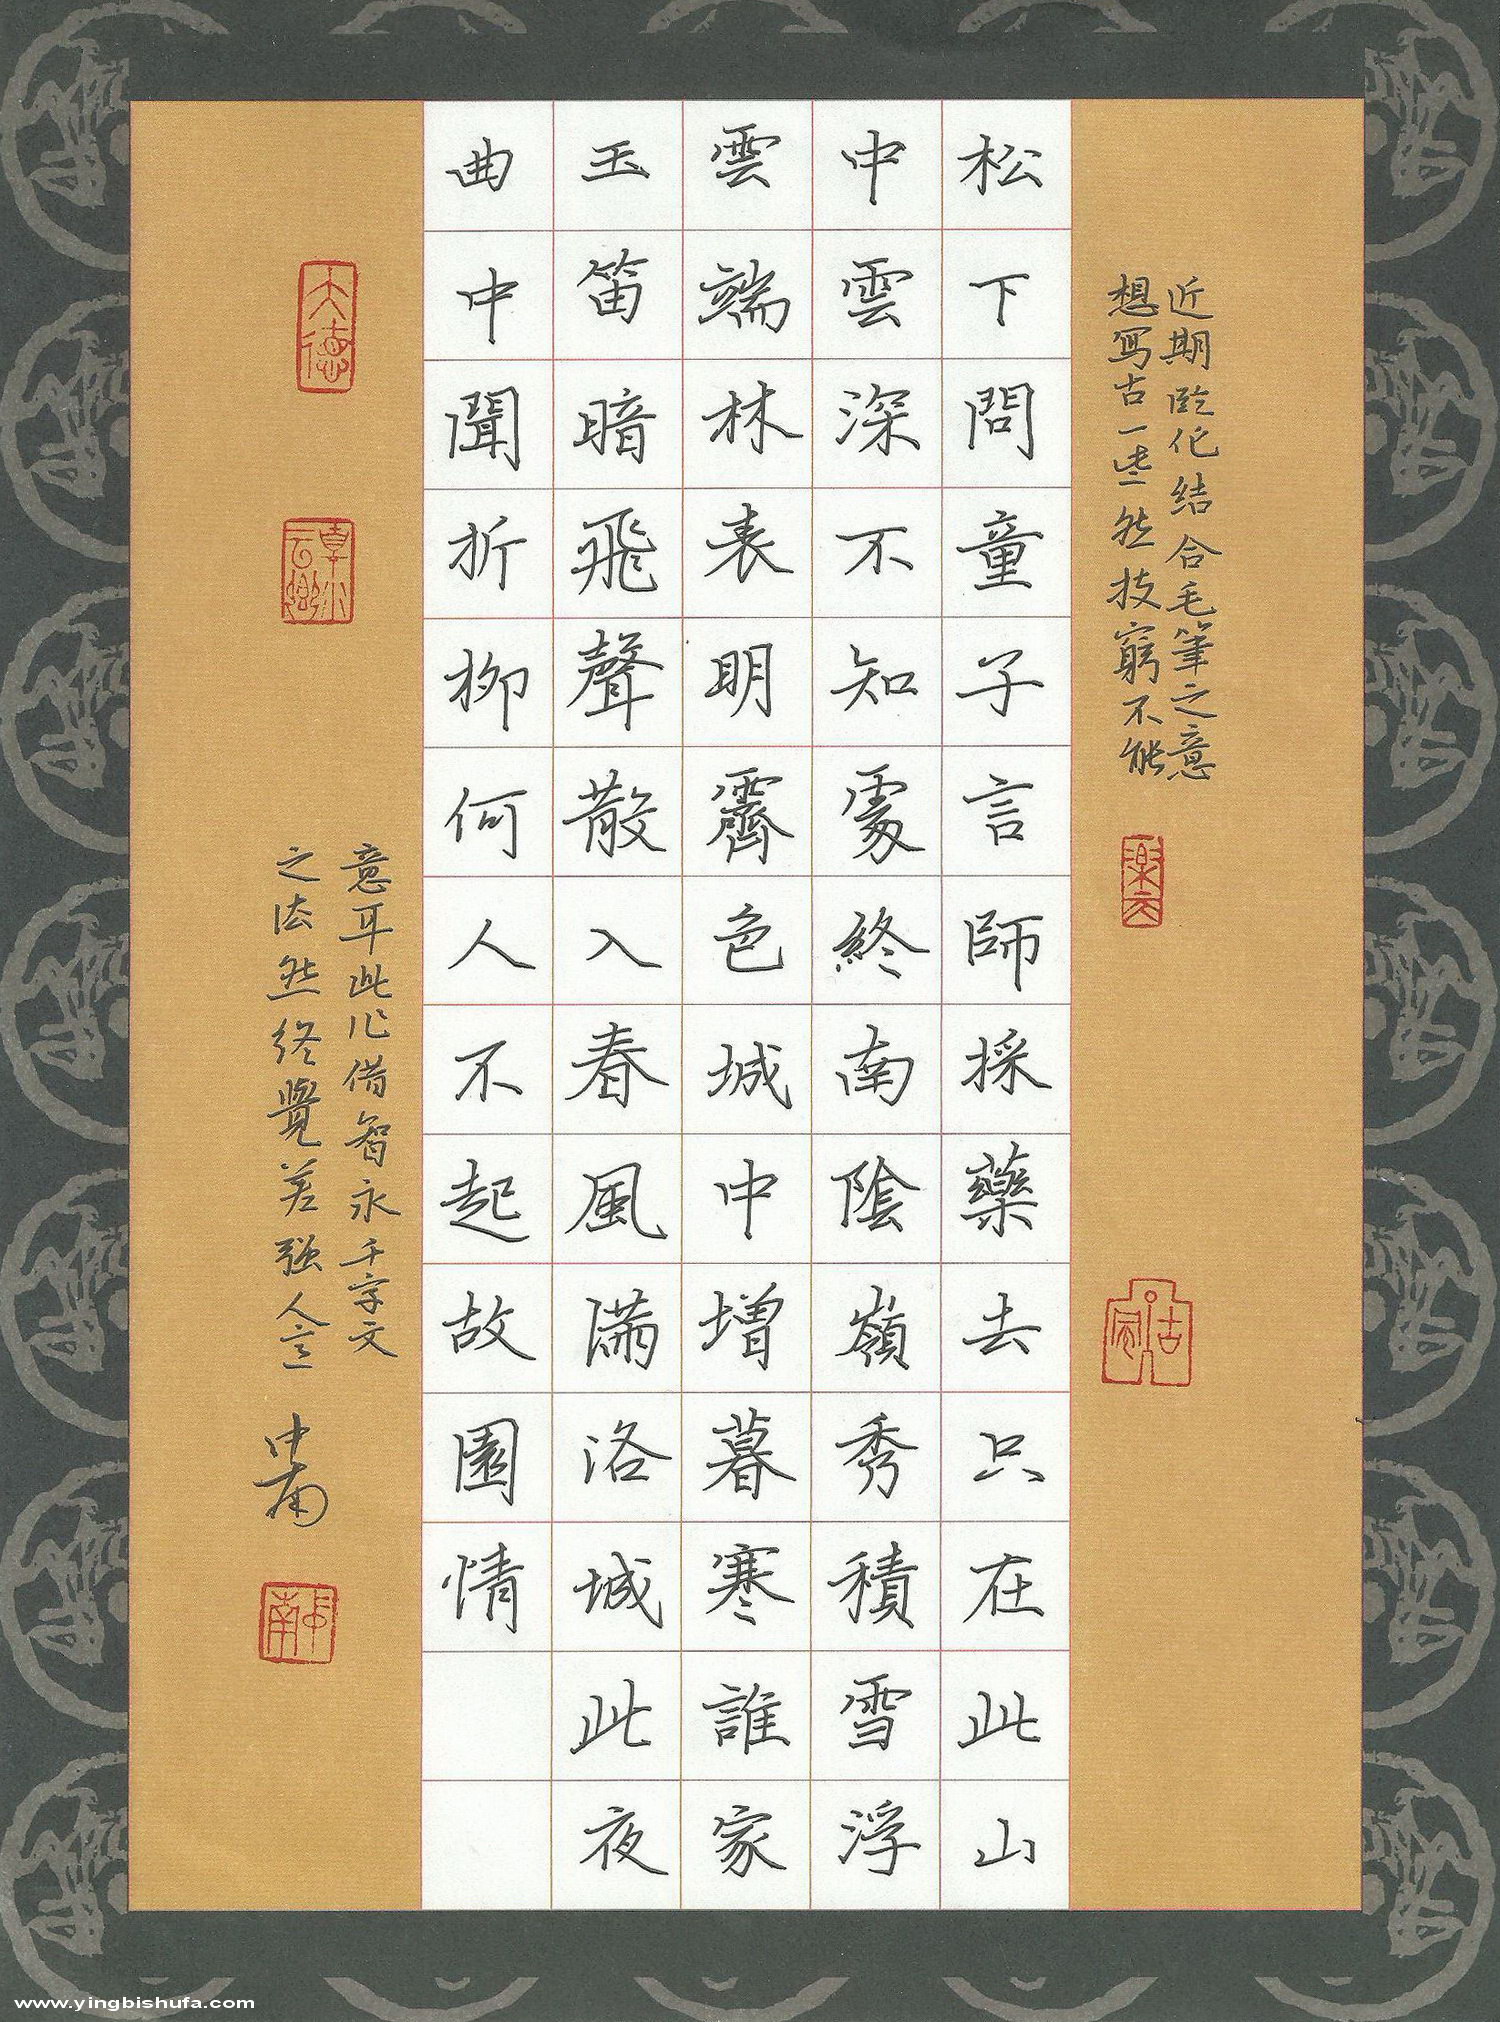 近期臨作結合毛筆之意
想寫古一些然技窮不能
松下問童子言師採藥去只在此山
中雲深不知處終南陰嶺秀積雪浮
雲端林表明霽色城中增暮寒誰家
玉笛暗飛聲散入春風滿洛城此夜
曲中聞折柳何人不起故園情
意耳此作借智永千字文
之法然終覺差强人意
中南
大德
www.yingbishufa.com